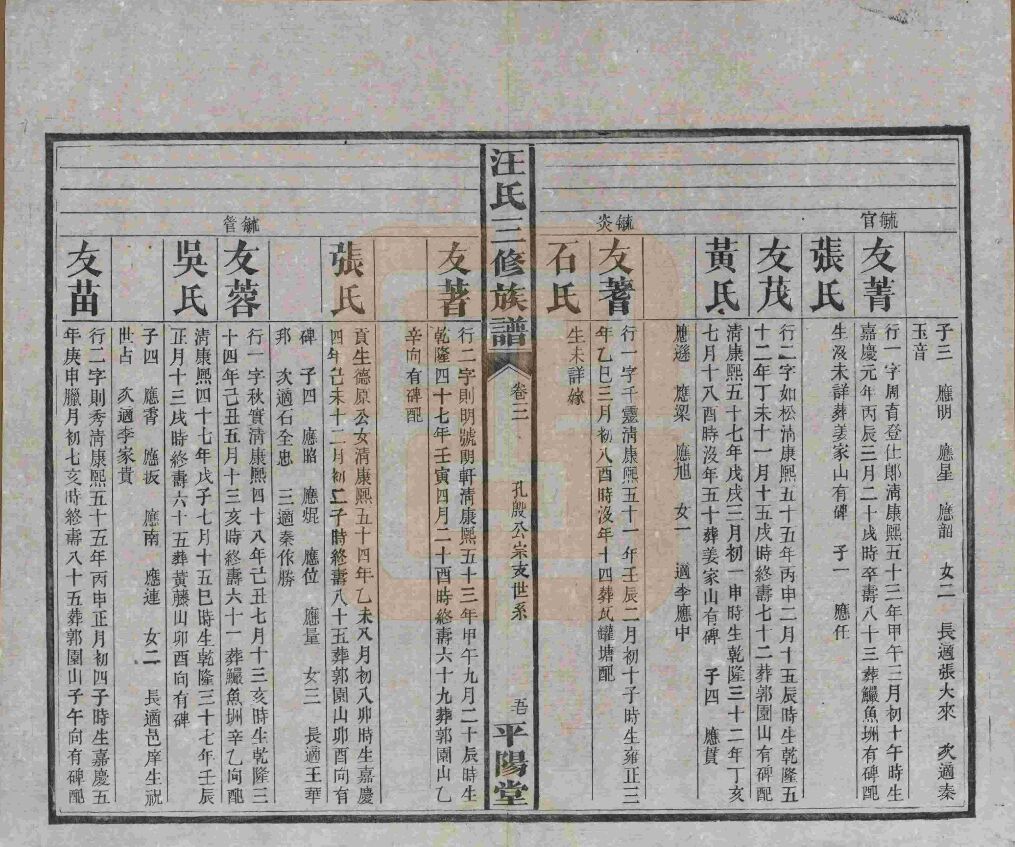 子三　應明　應星　應韶　女二　長適張大來　次適秦
玉音
毓官
友菁
行一字周育登仕郎清康熙五十三年甲午三月初十午時生
嘉慶元年丙辰三月二十戌時卒壽八十三葬鱺魚垇有碑配
張氏
生沒未詳葬姜家山有碑　子一　應任
友茂
行二字如松清康熙五十五年丙申二月十五辰時生乾隆五
十二年丁未十一月十五戌時終壽七十二葬郭園山有碑配
黃氏
清康熙五十七年戊戌三月初一申時生乾隆三十二年丁亥
七月十八酉時沒年五十葬姜家山有碑　子四　應貴
應遜　應梁　應旭　女一　適李應中
毓炎
友蓍
行一字千靈清康熙五十一年壬辰二月初十子時生雍正三
年乙巳三月初八酉時沒年十四葬瓦罐塘配
石氏
生未詳嫁
汪氏三修族譜
卷三
孔殷公宗支世系
五
平陽堂
友著
行二字則明號朗軒清康熙五十三年甲午九月二十辰時生
乾隆四十七年壬寅四月二十酉時終壽六十九葬郭園山乙
辛向有碑配
張氏
貢生德原公女清康熙五十四年乙未八月初八卯時生嘉慶
四年己未十二月初二子時終壽八十五葬郭園山卯酉向有
碑　子四　應昭　應焜　應位　應量　女三　長適王華
邦　次適石全忠　三適秦作勝
毓管
友蓉
行一字秋實清康熙四十八年己丑七月十三亥時生乾隆三
十四年己丑五月十三亥時終壽六十一葬鱺魚垇辛乙向配
吳氏
清康熙四十七年戊子七月十五巳時生乾隆三十七年壬辰
正月十三戌時終壽六十五葬黃藤山卯酉向有碑
子四　應膏　應坂　應南　應連　女二　長適邑庠生祝
世占　次適李家貴
友苗
行二字則秀清康熙五十五年丙申正月初四子時生嘉慶五
年庚申臘月初七亥時終壽八十五葬郭園山子午向有碑配